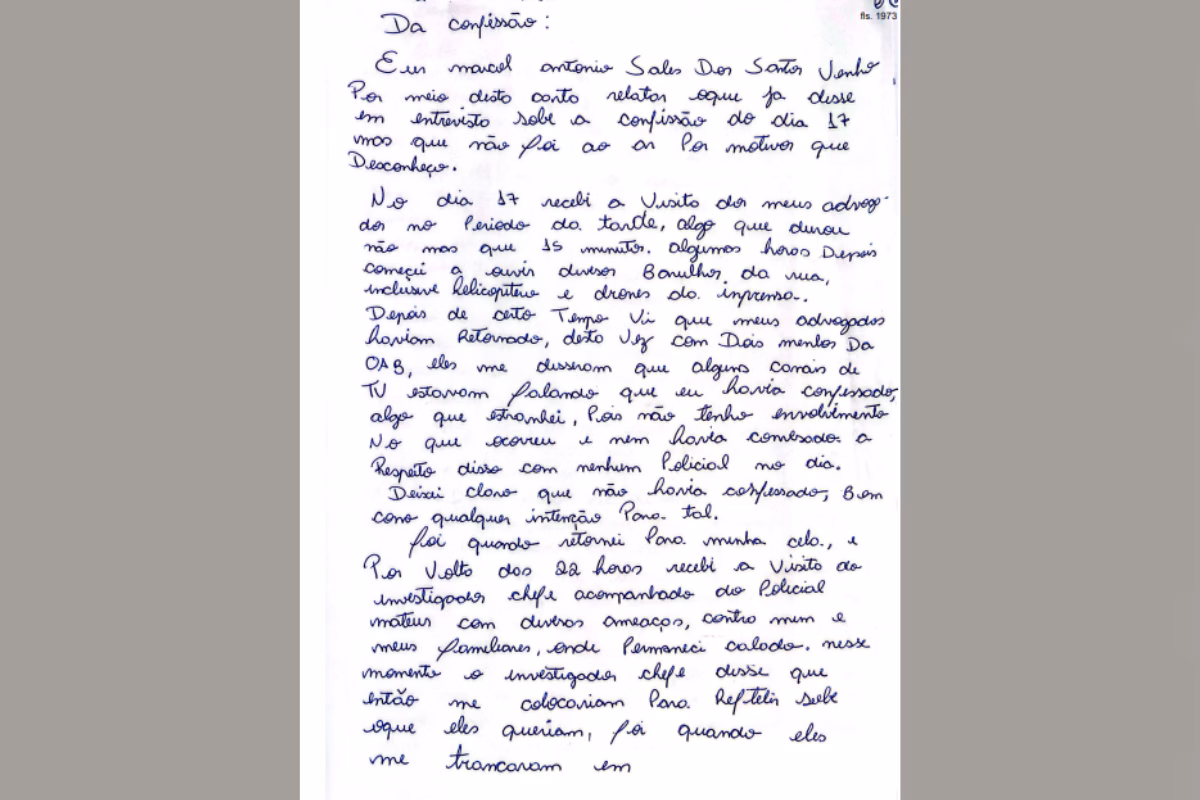 fls. 1973
Da confissão:
Eu marcol antonio Sales Dos Santos Venho
Por meio desta carta relatar oque ja disse
em entrevista sobe a confissão do dia 17
mas que não foi ao ar Por motivos que
Desconheço.
No dia 17 recebi a Visita dos meus advoga-
dos no Periodo da tarde, algo que durou
não mas que 15 minutos. algumas horas Depois
começei a ouvir diversos Barulhos da rua,
inclusive helicoptero e drones da inprensa.
Depois de certo Tempo Vi que meus advogados
haviam Retornado, desta Vez com Dois menbos Da
OAB, eles me disseram que alguns canais de
TV estavam falando que eu havia confessado,
algo que estranhei, Pois não tenho envolvimento
No que ocorreu e nem havia conversado a
Respeito disso com nenhum Policial no dia.
Deixai claro que não havia confessado, Bem
como qualquer intenção Para tal.
foi quando retornei Para minha cela, e
Por Volta das 22 horas recebi a Visita do
investigador chefe acompanhado do Policial
mateus com diversas ameaças, contra mim e
meus familiares, onde Permaneci calado. nesse
momento o investigador chefe disse que
então me colocariam Para
oque eles queriam, foi quando eles
me trancaram em